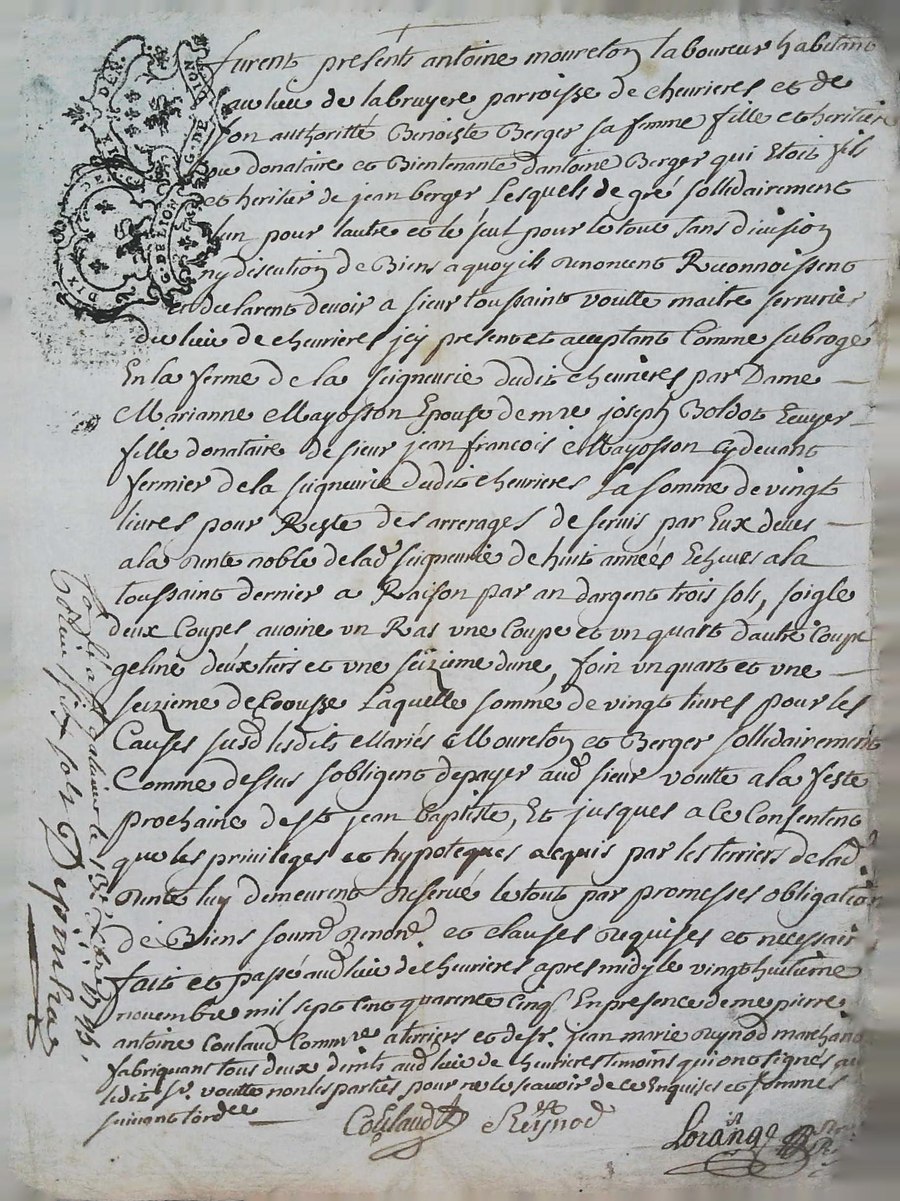 furent presents antoine moureton laboureur habitant
au lieu de labruyere parroisse de chevrieres et de
son authoritté Benoiste Berger sa femme fille et heritiere
ou donataire et Bientenante dantoine Berger qui Etoit fils
et heritier de jean berger Lesquels de gré sollidairement
lun pour lautre et le seul pour le tout sans division
ny discution de Biens a quoy ils renoncent Reconnoissent
et declarent devoir a sieur toussaint voutte maitre serrurier
du lieu de chevrieres jcy present et acceptant Comme subrogé
En la ferme de la seigneurie dudit chevrieres par Dame
Marianne Mayosson Epouse de mre joseph Boldot Ecuyer
fille donataire de sieur jean francois Mayosson cy devant
fermier de la seigneurie dudit chevrieres La somme de vingt
livres pour Reste des arrerages de servis par Eux deues
a la rente noble de lad seigneurie de huit années Echues a la
toussaint dernier a Raison par an dargent trois sols, soigle
deux Coupes avoine un Ras une Coupe et un quart dautre Coupe
geline deux tiers et une seizieme dune, foin un quart et une
seizieme de trousse Laquelle somme de vingt livres pour les
Causes susd lesdits Mariés Moureton et Berger sollidairement
Comme dessus sobligent de payer aud sieur voutte a la feste
prochaine de st jean Baptiste, Et jusques a ce Consentent
que les privileges et hypoteques acquis par les terriers de lad
rente luy demeurent reservé le tout par promesses obligation
de Biens soum renon et clauses requises et necessair
fait et passé aud lieu de chevrieres apres midy le vingt huitieme
novembre mil sept cent quarente cinq En presence de me pierre
antoine Coulaud Commre a terriers et de sr. jean marie reynod marchand
fabriquant tous deux demts aud lieu de chevrieres temoins qui ont signés avec
ledit sr. voutte non les parties pour ne le scavoir de ce Enquises et sommes
suivant lordce
Coulaud Reynod
Lorange
G. DE LION
G. DE LION
DEN.
DIX DEN